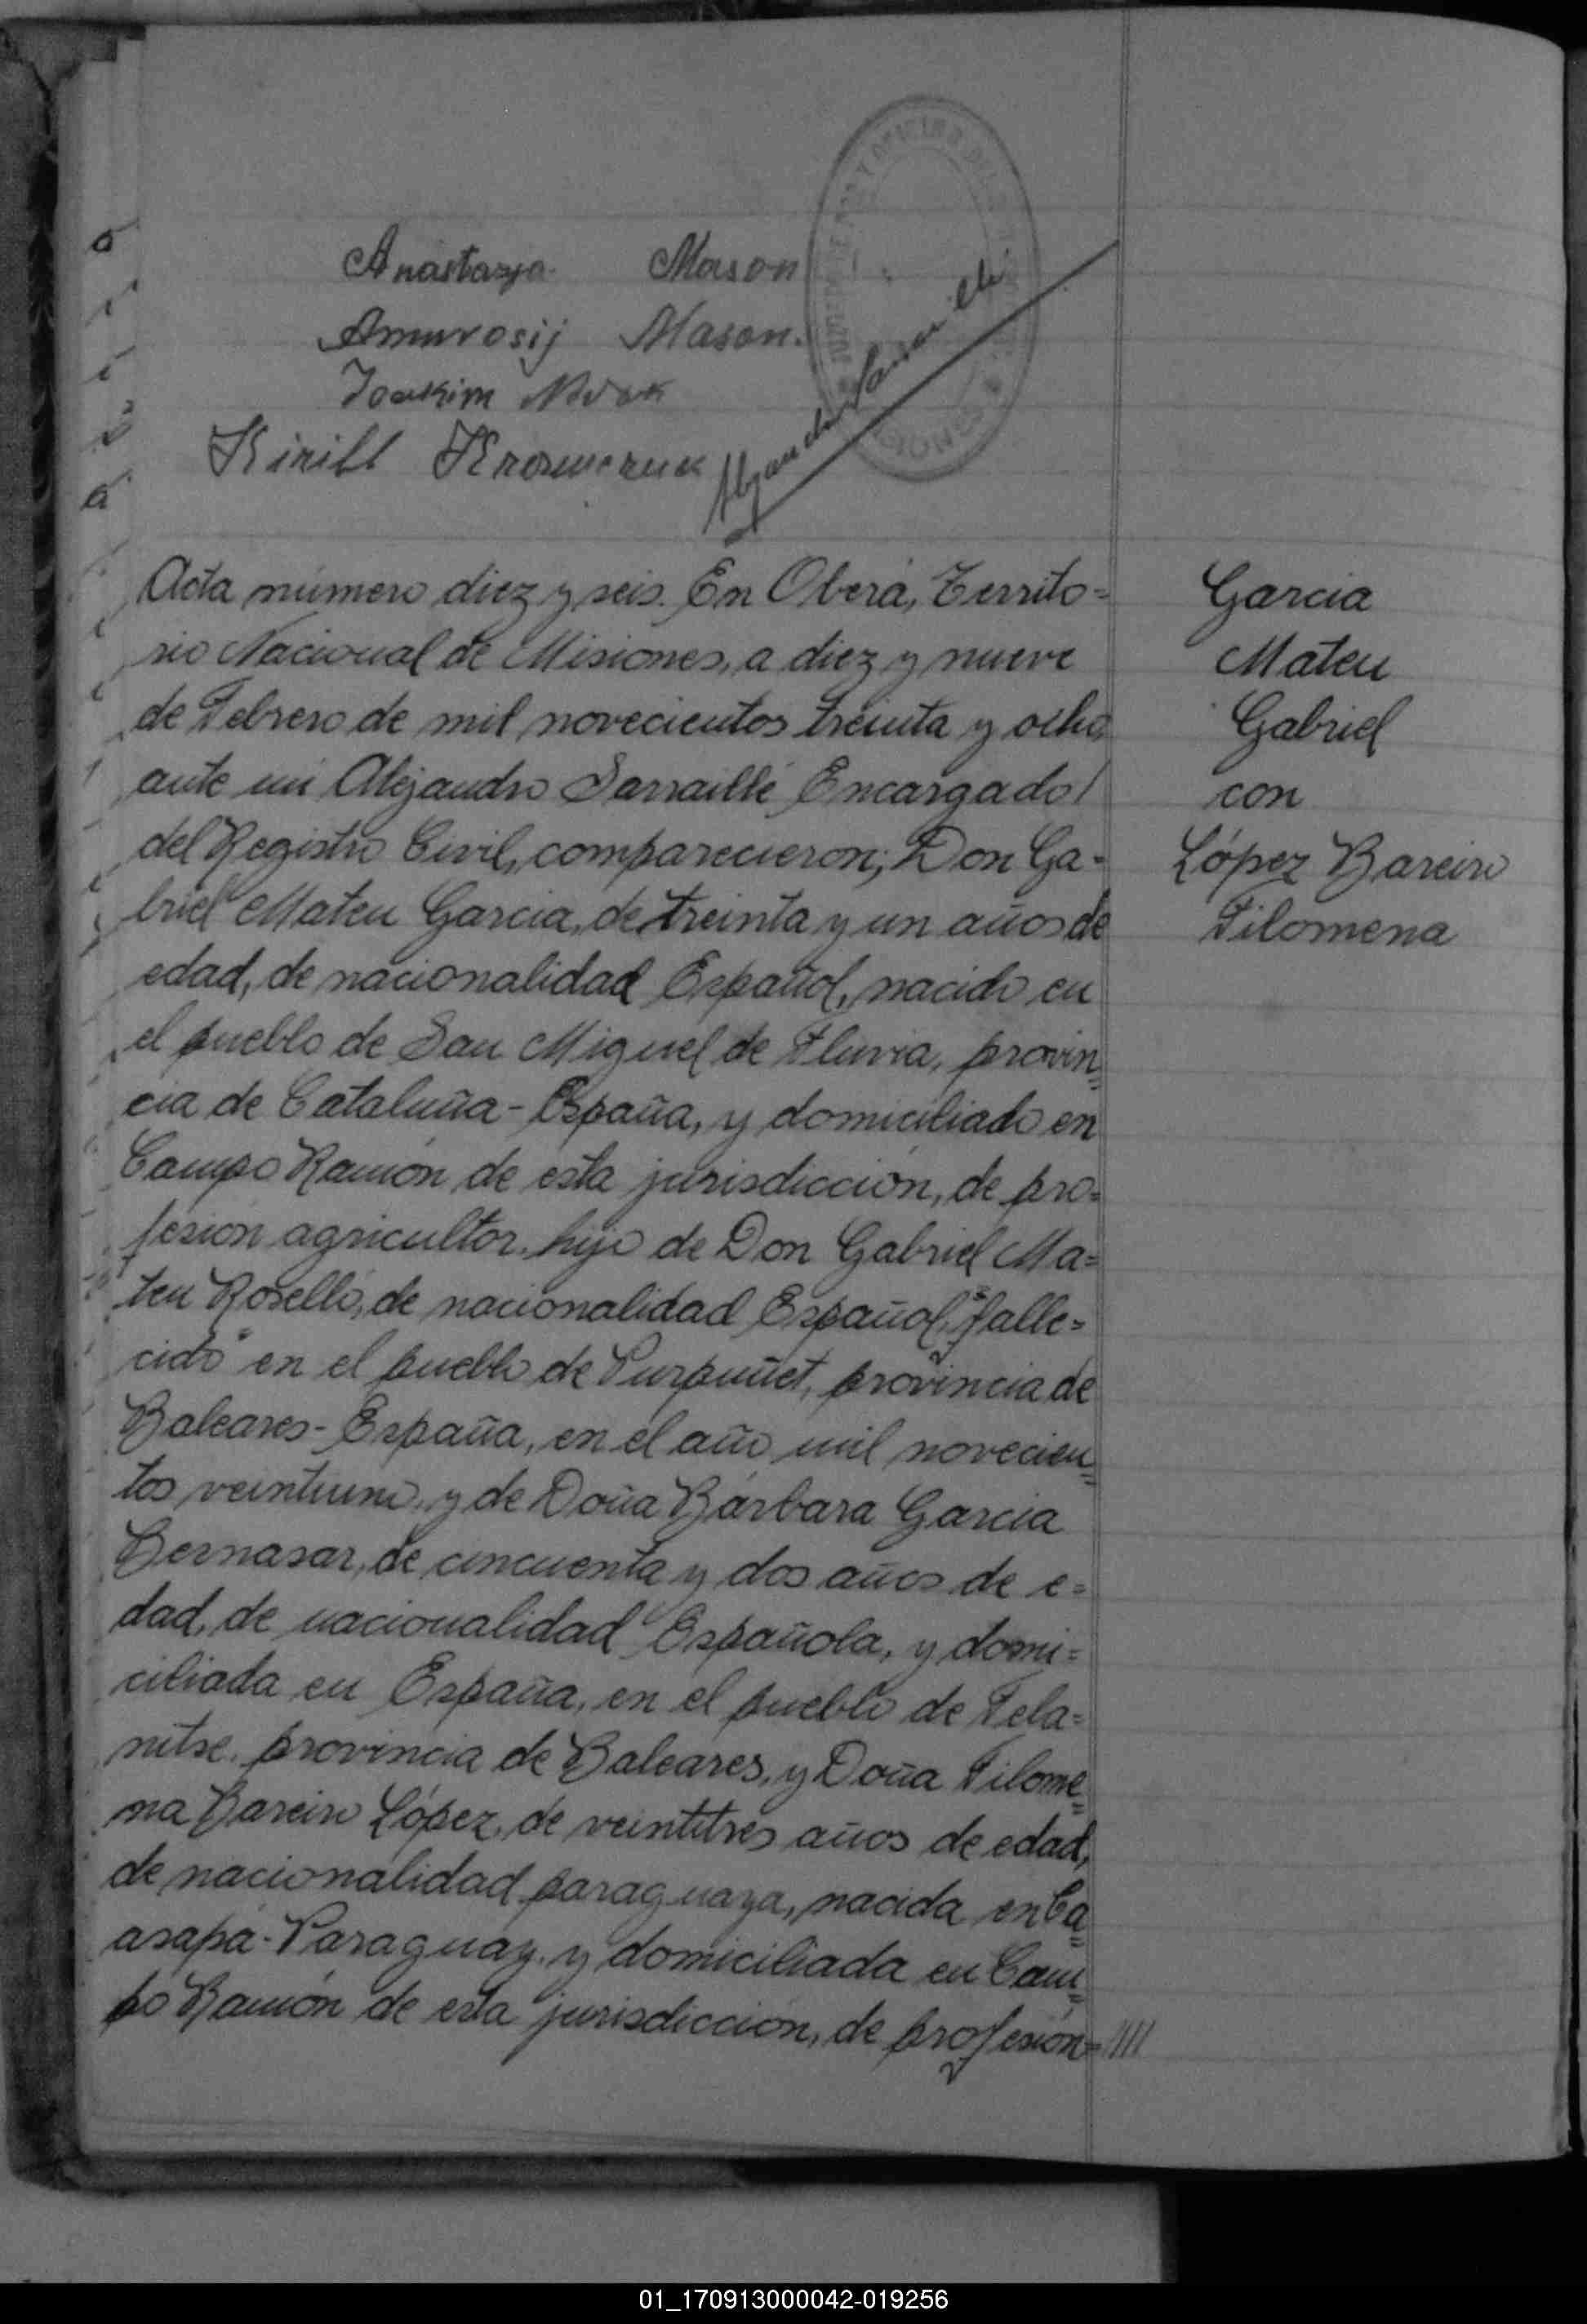 Anastazja Mason
Amwrosij Mason.
Joakim Nowak
Kirill
Acta número diez y seis. En Oberá, Territo=
rio Nacional de Misiones, a diez y nueve
de Febrero de mil novecientos treinta y ocho,
ante mi Alejandro Sarraillé Encargado/
del Registro Civil, comparecieron; Don Ga=
briel Mateu Garcia, de treinta y un años de
edad, de nacionalidad Español, nacido en
el pueblo de San Miguel de Fluvia, provin=
cia de Cataluña-España, y domiciliado en
Campo Ramón de esta jurisdicción, de pro=
fesión agricultor, hijo de Don Gabriel Ma=
teu Roselló, de nacionalidad Español, "falle=
cido" en el pueblo de Purpuñet, provincia de
Baleares-España, en el año mil novecien=
tos veintiuno, y de Doña Bárbara Garcia
Bernasar, de cincuenta y dos años de e=
dad, de nacionalidad Española, y domi=
ciliada en España, en el pueblo de Fela=
nitse, provincia de Baleares, y Doña Filome=
na Bareiro López, de veintitres años de edad,
de nacionalidad paraguaya, nacida en Ca=
asapá-Paraguay, y domiciliada en Cam=
po Ramón de esta jurisdicción, de profesión=////
Garcia
Mateu
Gabriel
con
López Bareiro
Filomena
01_170913000042-019256